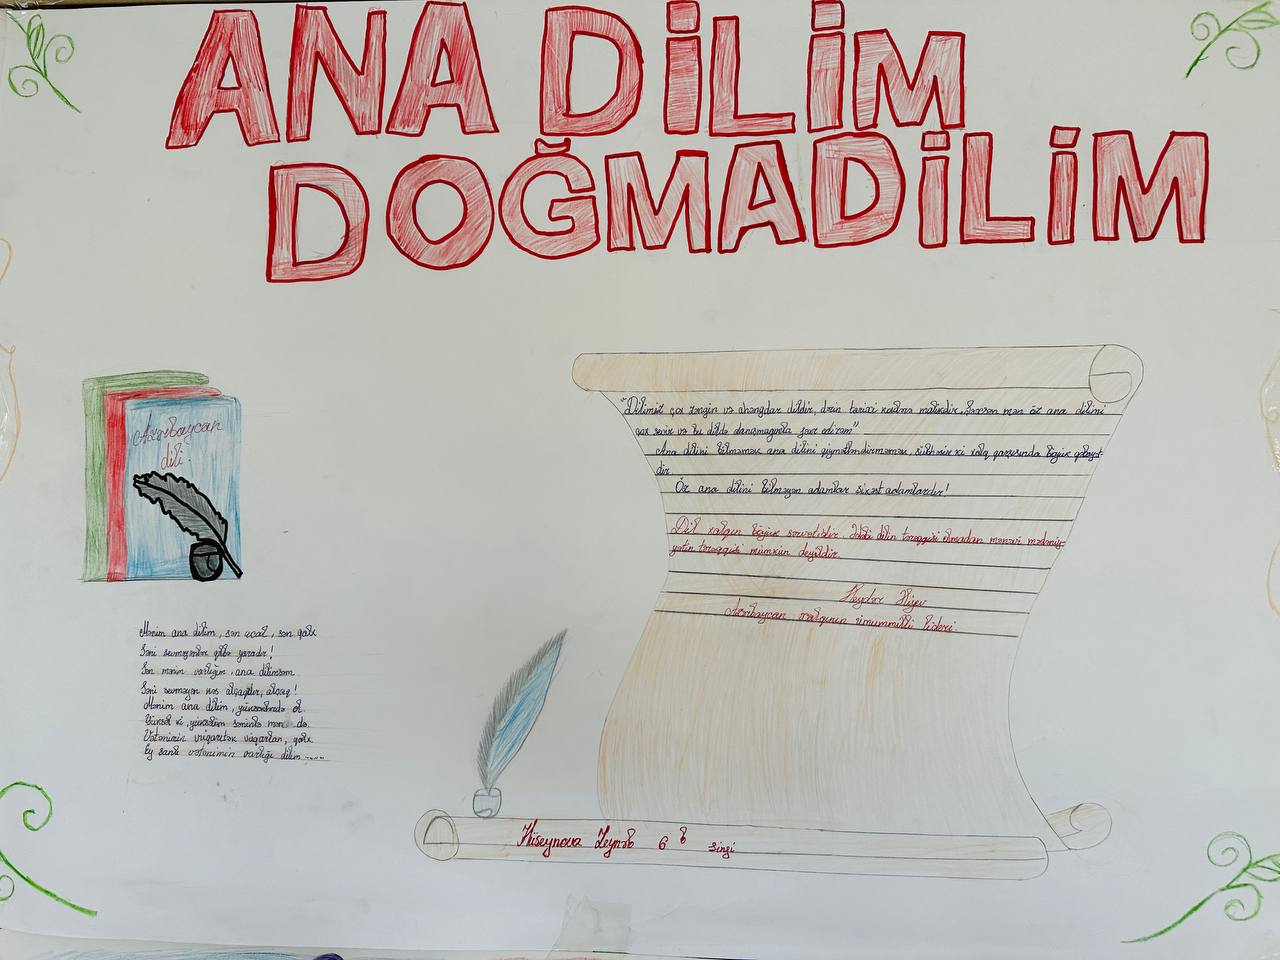 ANA DİLİM
DOĞMA DİLİM
Azərbaycan
dili
"Dilimiz çox zəngin və ahəngdar dildir, dərin tarixi köklərə malikdir. Şəxsən mən öz ana dilimi
çox sevir və bu dildə danışmağımla fəxr edirəm"
Ana dilini bilməmək ana dilini qiymətləndirməmək, şübhəsiz ki xalq qarşısında böyük qəbahət-
dir.
Öz ana dilini bilməyən adamlar şikəst adamlardır!
Dil xalqın böyük sərvətidir. Ədəbi dilin tərəqqisi olmadan mənəvi mədəniy-
yətin tərəqqisi mümkün deyildir.
Heydər Əliyev
Azərbaycan xalqının ümummilli lideri.
Mənim ana dilim, sən ucal, sən qalx
Səni sevməyənlər qəlbə yaradır!
Sən mənim varlığım, ana dilimsən
Səni sevməyən kəs alçaqdır, alçaq!
Mənim ana dilim, yüksəklərdə ol
Yüksəl ki, yüksəlim səninlə mən də.
Vətənimin vüqarıtək vüqarlan, qalx
Ey şanlı vətənimin varlığı dilim
Hüseynova Zeynəb 6 b sinfi